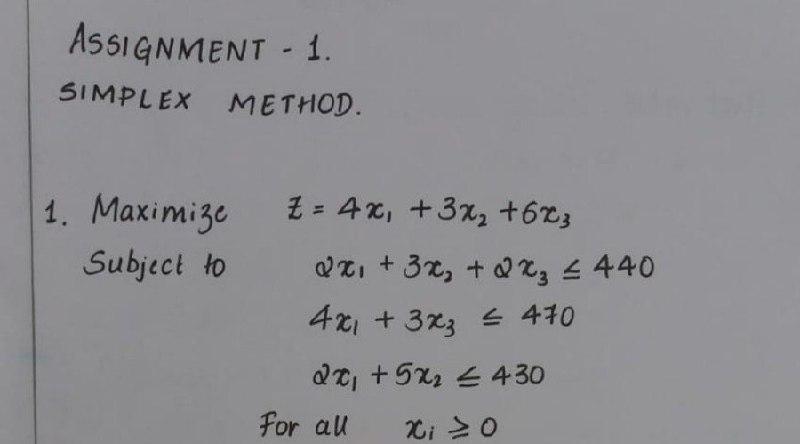 ASSIGNMENT - 1.
SIMPLEX METHOD.
1. Maximize Z = 4x₁ + 3x₂ + 6x₃
Subject to 2x₁ + 3x₂ + 2x₃ ≤ 440
4x₁ + 3x₃ ≤ 470
2x₁ + 5x₂ ≤ 430
For all xᵢ ≥ 0